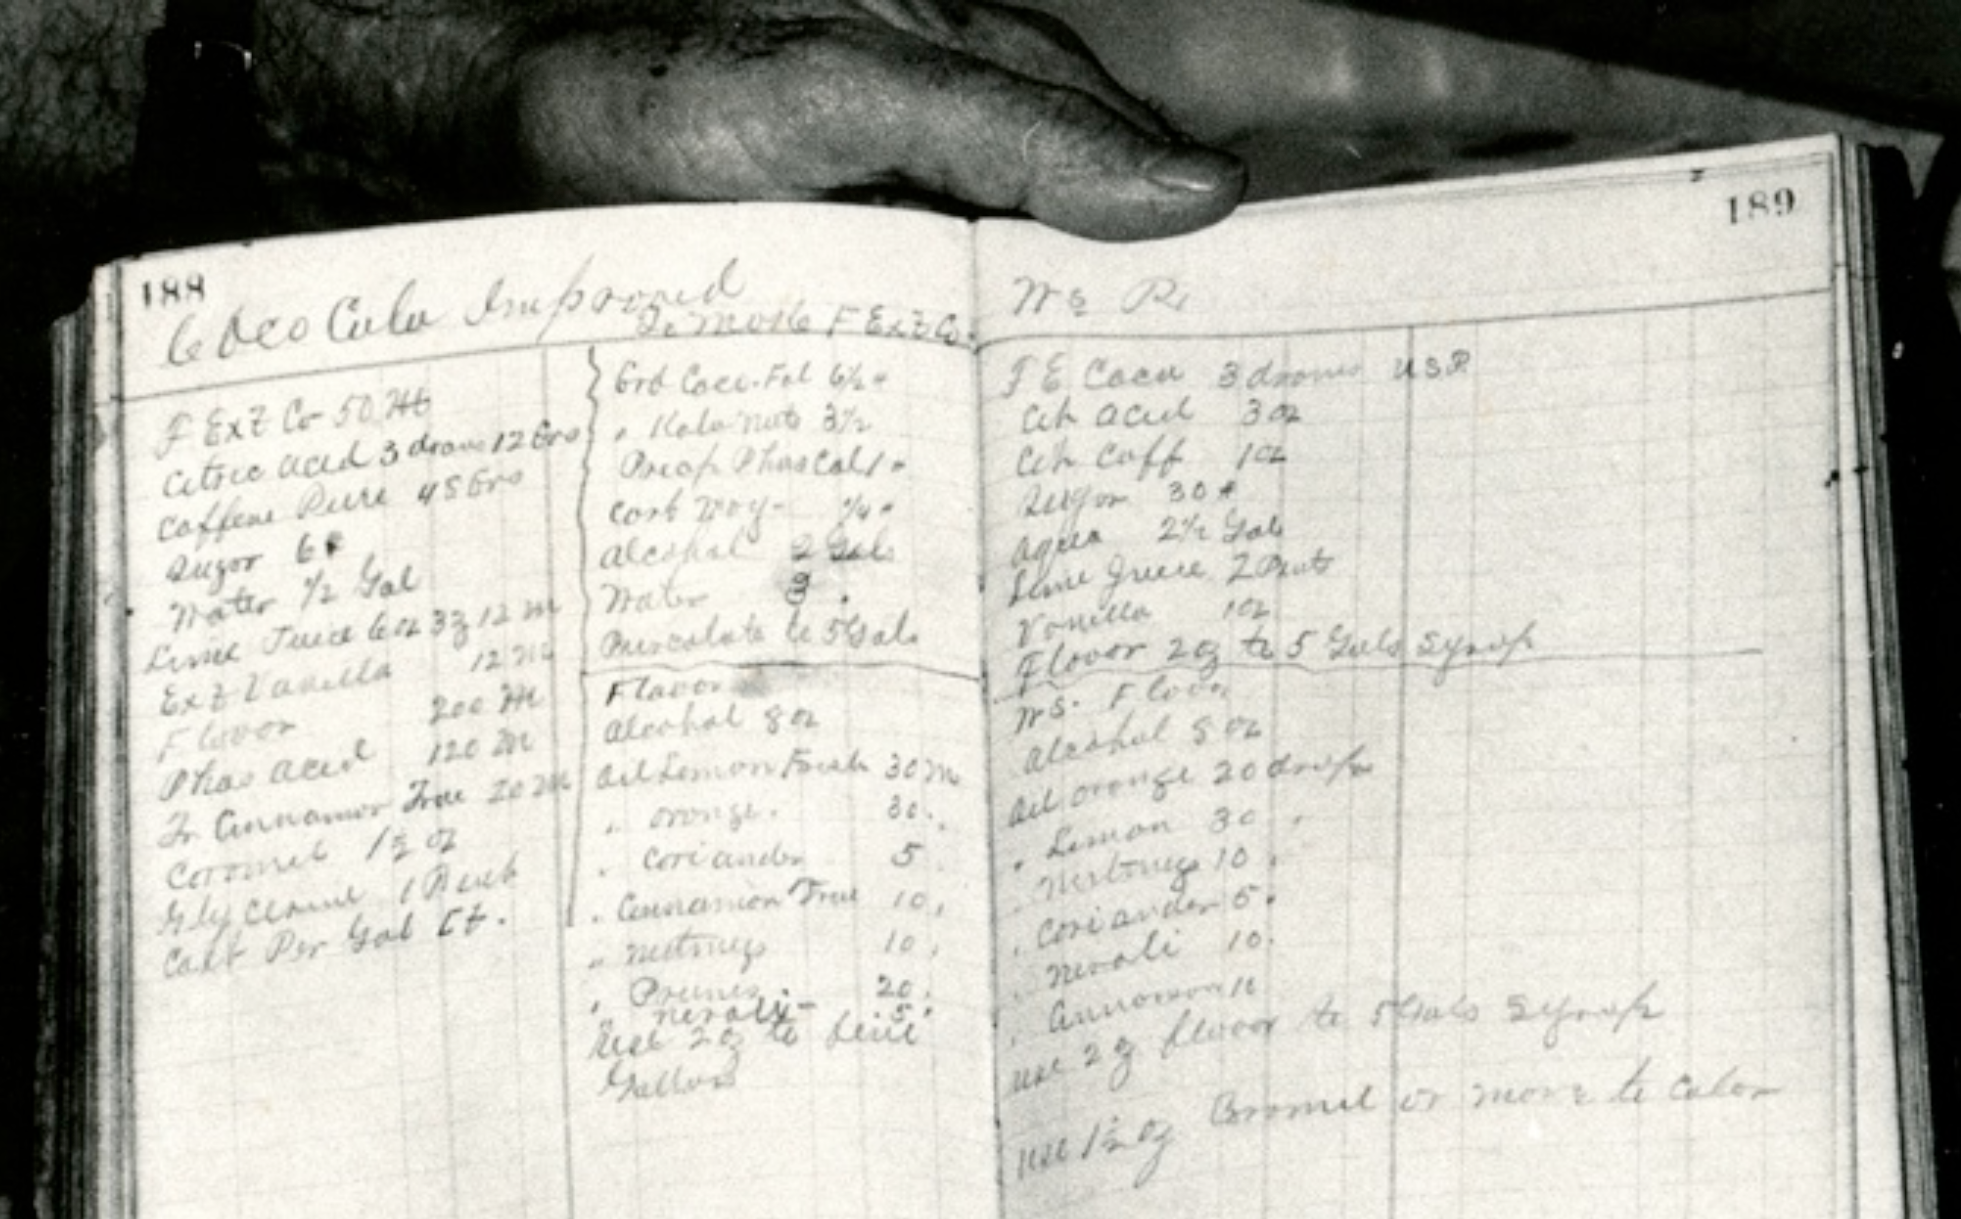 188
Coco Cola Improved
To Make F Ext Co.
F Ext Co 50 M
Citric Acid 3 drams 12 Grs
Caffene Pure 45 Grs
Sugar 6#
Water 1/2 Gal
Lime Juice 6 oz 3ʒ 12 M
Ext Vanilla 12 M
Flavor 200 M
Phos Acid 120 M
Tr Cinnamon True 20 M
Coromel 1 1/2 oz
Glycerine 1
Cost Per Gal
Grd Coca. Fol 6 1/2 "
" Kola Nuts 3 1/2
Precip Phos Cal 1 "
Carb Mag - 1/4 "
Alcohol 2 Gals
Water 3 "
Percolate to 5 Gals
Flavor
Alcohol 8 oz
Oil Lemon Fresh 30 M
" Orange . 30 "
" Coriander 5
" Cinnamon True 10 "
" Nutmegs 10 "
" 20 "
" Neroly - 5 "
Use 2 oz to five
Gallons
189
Ws R
F E Coca 3 drams USP
Cit Acid 3 oz
Cit Caff 1 oz
Sugar 30 #
Aqua 2 1/2 Gal
Lime Juice 2 Pints
Vanilla 1 oz
Flavor 2 oz to 5 Gals Syrup
Ws. Flavor
Alcohol 8 oz
Oil Orange 20 drops
" Lemon 30 "
" Nutmegs 10 "
" Coriander 5 "
" Neroli 10 "
" Cinnamon
Use 2 oz flavor to 5 Gals Syrup
use 1 1/2 oz or more to color